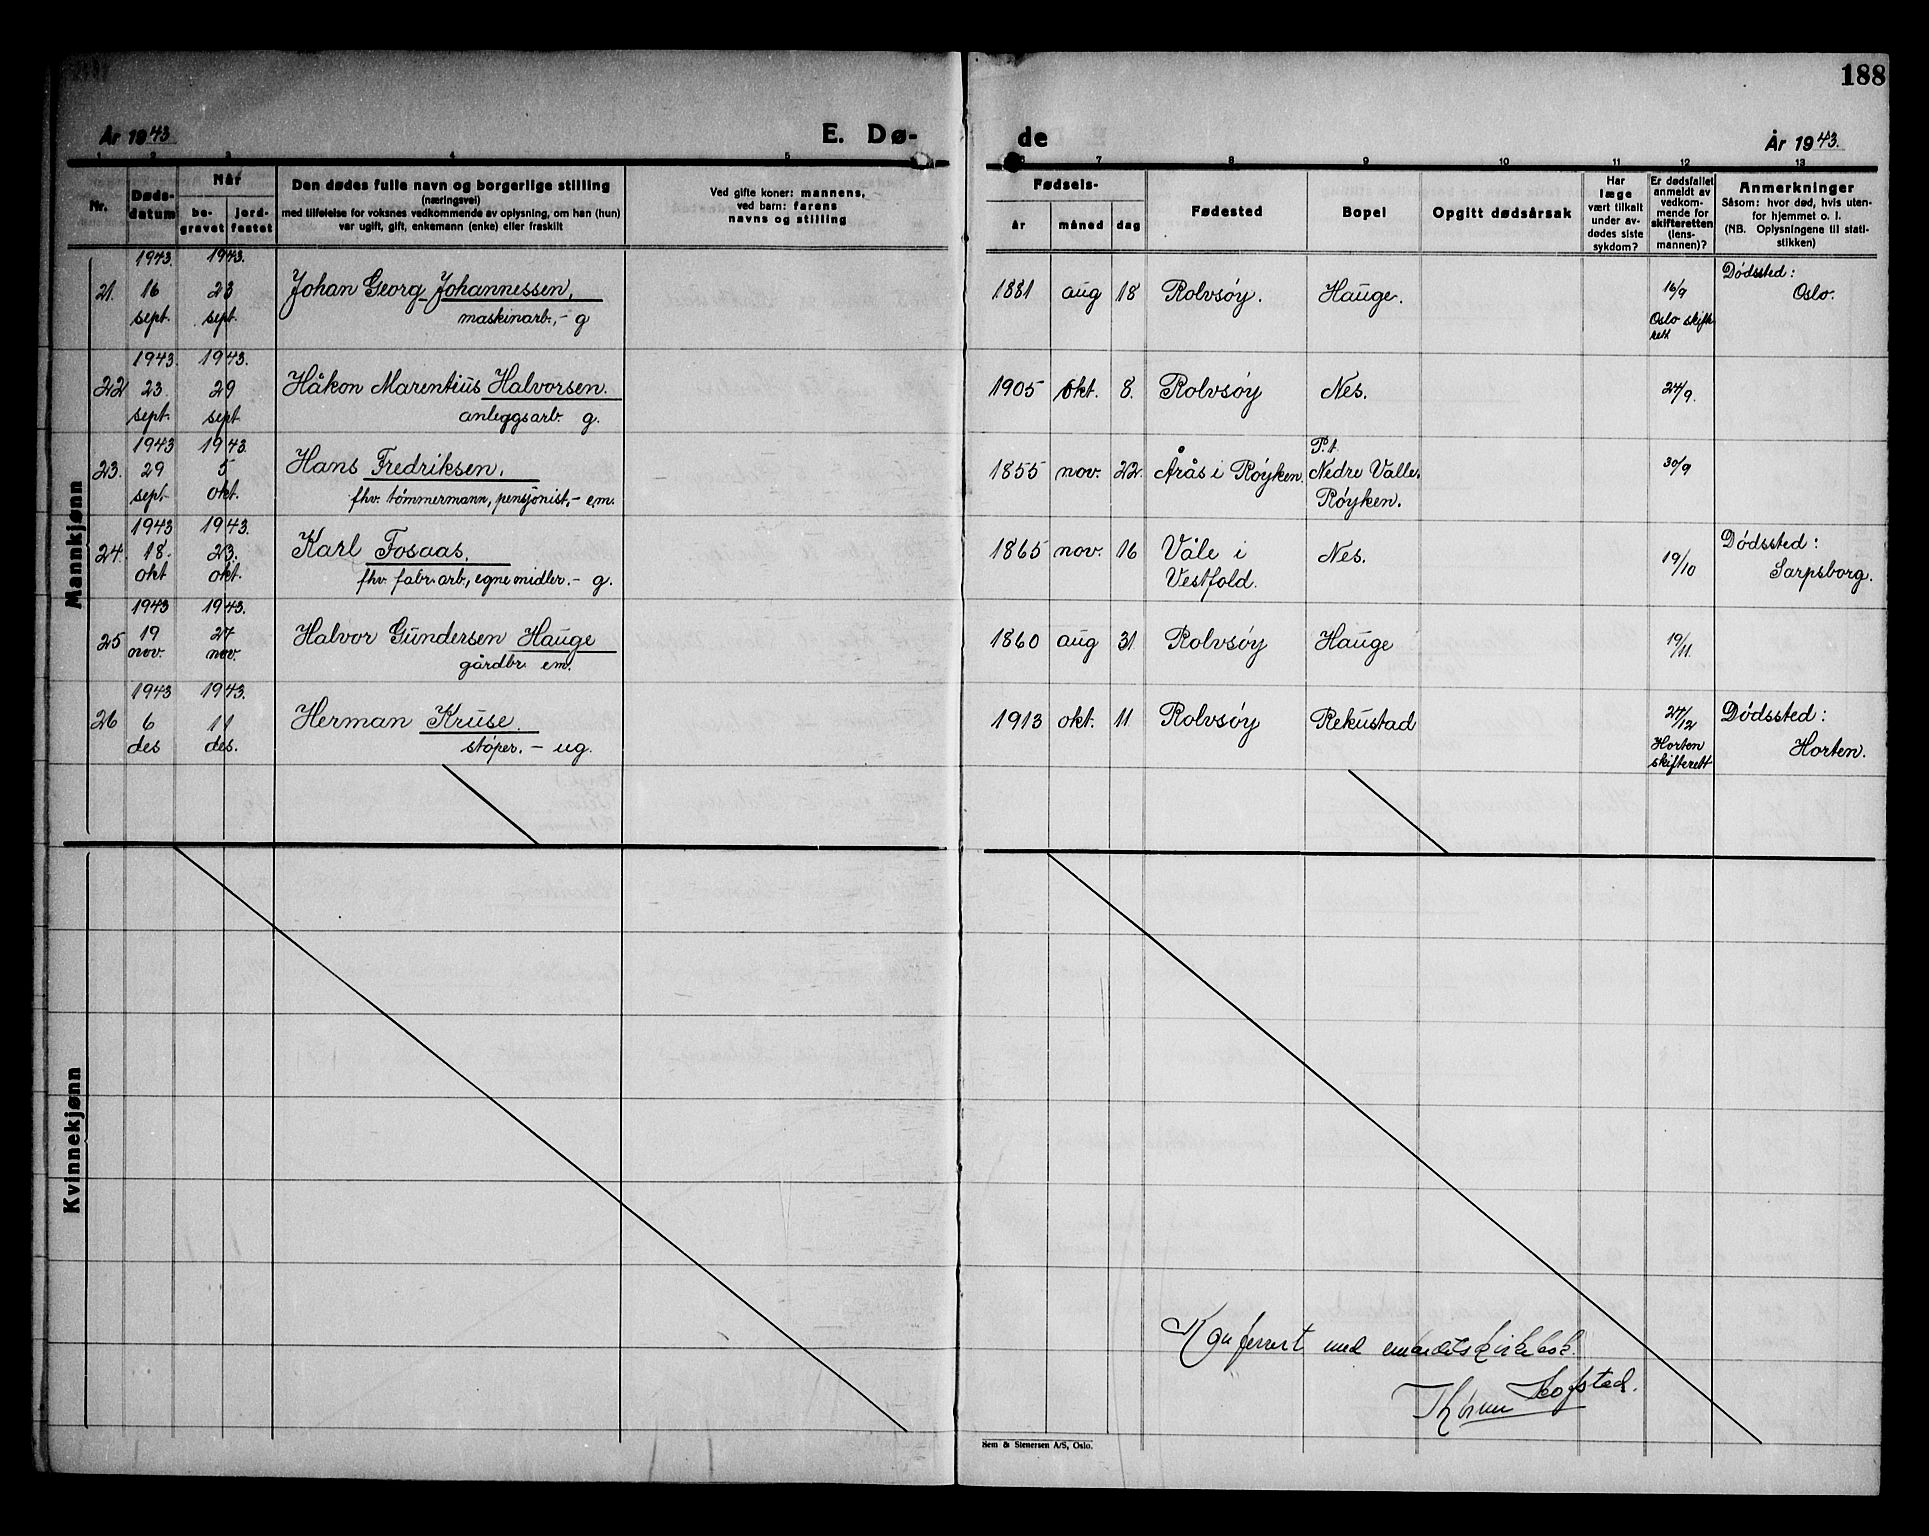 188
År 1943
E. Dø-
de
År 1943.
1 2 3 4 5 6 7 8 9 10 11 12 13
Nr.
Døds-
datum
Når
be-
gravet
jord-
festet
Den dødes fulle navn og borgerlige stilling
(næringsvei)
med tilføielse for voksnes vedkommende av oplysning, om han (hun)
var ugift, gift, enkemann (enke) eller fraskilt
Ved gifte koner: mannens,
ved barn: farens
navns og stilling
Fødsels-
år
måned
dag
Fødested
Bopel
Opgitt dødsårsak
Har
læge
vært tilkalt
under av-
dødes siste
sykdom?
Er dødsfallet
anmeldt av
vedkom-
mende for
skifteretten
(lens-
mannen)?
Anmerkninger
Såsom: hvor død, hvis uten-
for hjemmet o. l.
(NB. Oplysningene til stati-
stikken)
Mannkjønn
1943. 1943.
21. 16 sept. 23 sept. Johan Georg Johannessen,
maskinarb., - g
1881 aug 18 Rolvsøy. Hauge. 16/9
Oslo skifte
rett
Dødssted:
Oslo.
1943. 1943.
22 23 sept. 29 sept Håkon Marentius Halvorsen.
anleggsarb. g.
1905 okt. 8. Rolvsøy Nes. 24/9.
1943 1943.
23. 29 sept 5 okt. Hans Fredriksen.
fhv. tømmermann, pensjonist, - em.
1855 nov. 22. Årås i Røyken. P.t.
Nedre Valle,
Røyken. 30/9
1943 1943.
24. 18. okt 23. okt. Karl Fosaas.
fhv. fabr. arb., egne midler. - g.
1865 nov. 16 Våle i
Vestfold. Nes. 19/10
Dødssted:
Sarpsborg.
1943 1943.
25 19 nov. 27 nov. Halvor Gundersen Hauge
gårdbr. em.
1860 aug 31 Rolvsøy Hauge 19/11.
1943 1943.
26 6 des 11 des. Herman Kruse.
støper. - ug.
1913 okt. 11 Rolvsøy Rekustad 27/12
Horten
skifterett
Dødssted:
Horten.
Kvinnekjønn
Konferert med embedetskirkebok.
Hofstad.
Sem & Stenersen A/S, Oslo.